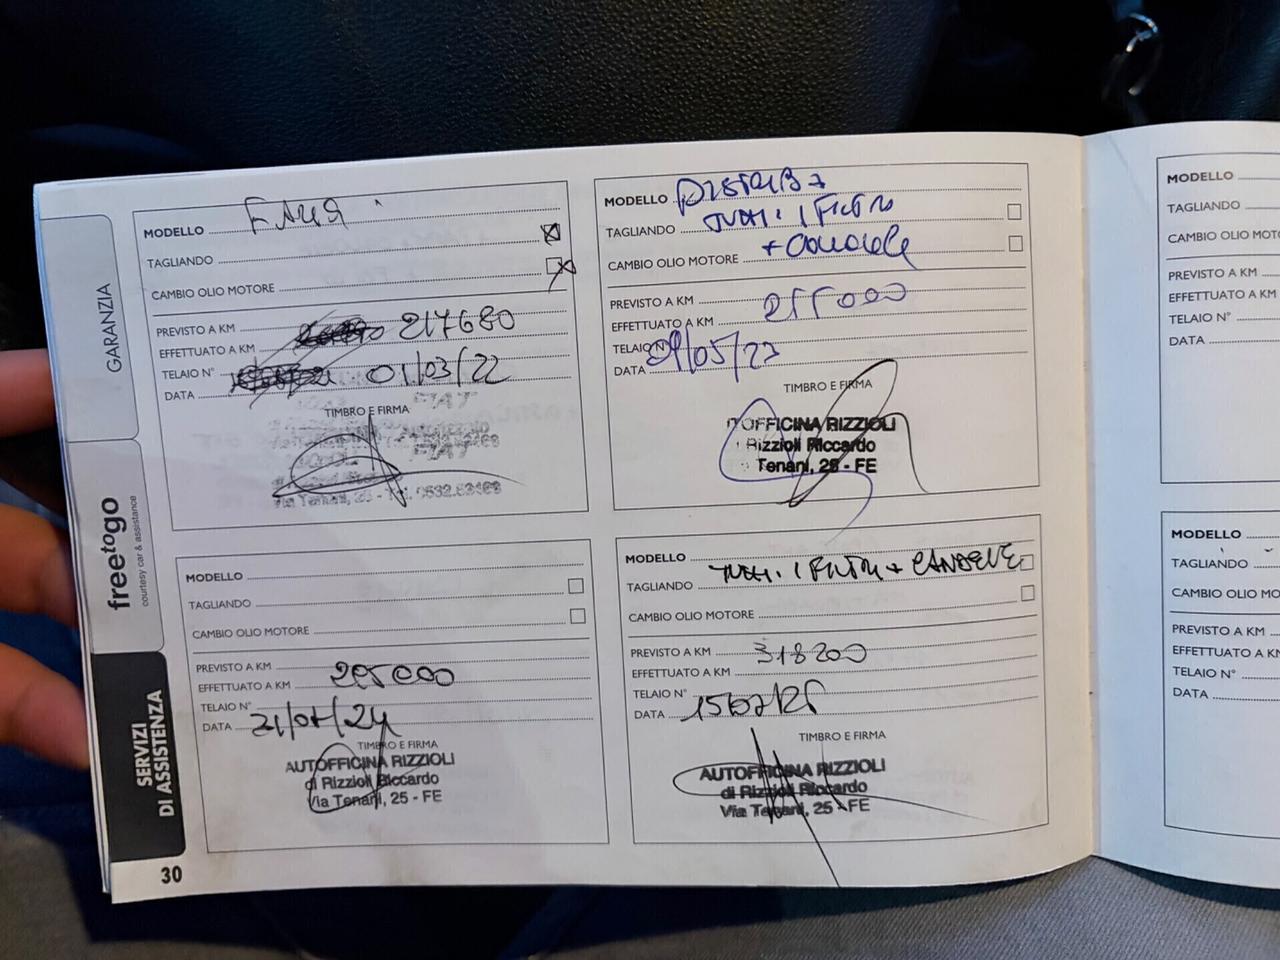 GARANZIA
freetogo
courtesy car & assistance
SERVIZI
DI ASSISTENZA
30
MODELLO
TAGLIANDO
CAMBIO OLIO MOTORE
PREVISTO A KM
EFFETTUATO A KM 217680
TELAIO N°
DATA 01/03/22
TIMBRO E FIRMA
FIAT
FIAT
Via Tenani, 25 - Tel. 0532.
MODELLO
TAGLIANDO TUTTI I FILTRI
CAMBIO OLIO MOTORE + CANDELE
PREVISTO A KM
EFFETTUATO A KM 255000
TELAIO N°
DATA /05/23
TIMBRO E FIRMA
TOFFICINA RIZZIOLI
i Rizzioli Riccardo
Tenani, 25 - FE
MODELLO
TAGLIANDO
CAMBIO OLIO MOTORE
PREVISTO A KM
EFFETTUATO A KM 295000
TELAIO N°
DATA
TIMBRO E FIRMA
AUTOFFICINA RIZZIOLI
di Rizzioli Riccardo
Via Tenani, 25 - FE
MODELLO
TAGLIANDO TUTTI I FILTRI + CANDELE
CAMBIO OLIO MOTORE
PREVISTO A KM
EFFETTUATO A KM 318200
TELAIO N°
DATA
TIMBRO E FIRMA
AUTOFFICINA RIZZIOLI
di Rizzioli Riccardo
Via Tenani, 25 - FE
MODELLO
TAGLIANDO
CAMBIO OLIO MOTO
PREVISTO A KM
EFFETTUATO A KM
TELAIO N°
DATA
MODELLO
TAGLIANDO
CAMBIO OLIO MO
PREVISTO A KM
EFFETTUATO A K
TELAIO N°
DATA